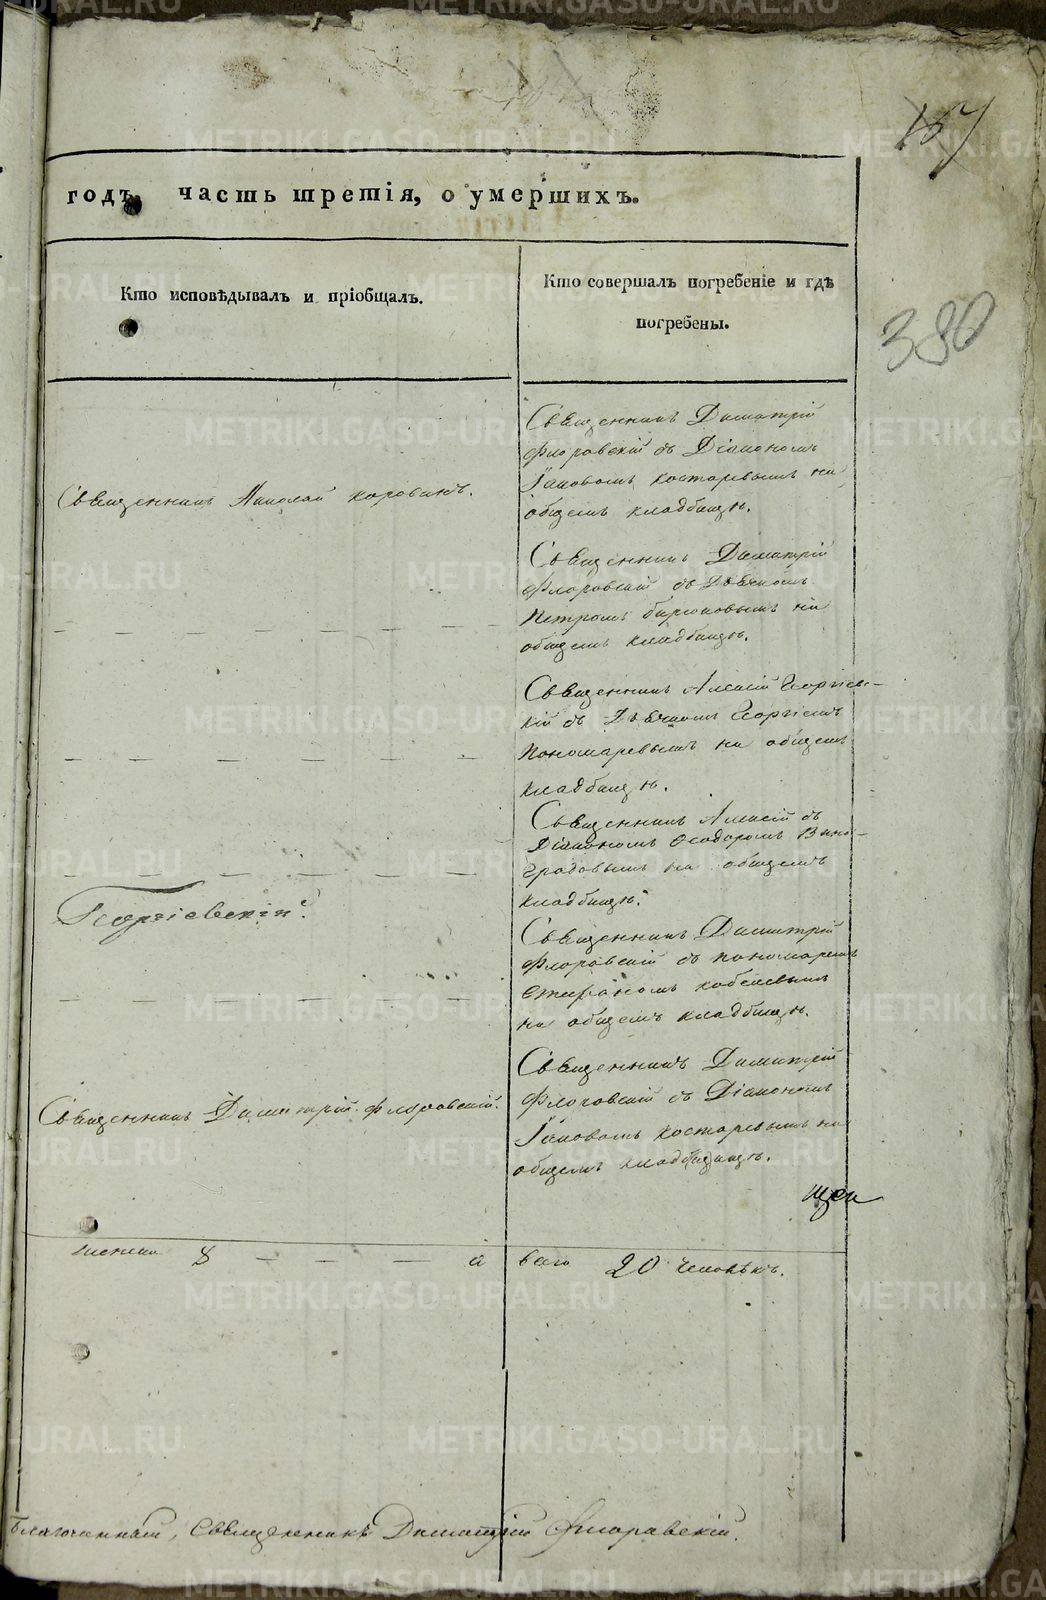 157
годъ, часть третія, о умершихъ.
Кто исповѣдывалъ и пріобщалъ.
Кто совершалъ погребеніе и гдѣ
погребены.
380
Священникъ Николай Коровинъ.
Священникъ Димитрій
Флоровскій съ Діакономъ
Іаковомъ Костаревымъ на
общемъ кладбищѣ.
Священникъ Димитрій
Флоровскій съ Дьячкомъ
Петромъ Бирюковымъ на
общемъ кладбищѣ.
Священникъ Алексій Георгіев-
кій съ Дьячкомъ Георгіемъ
Пономаревымъ на общемъ
кладбищѣ.
Священникъ Алексій съ
Діакономъ Ѳеодоромъ Вино-
градовымъ на общемъ
кладбищѣ.
Георгіевскій.
Священникъ Димитрій
Флоровскій съ пономаремъ
Стефаномъ Кобелевымъ
на общемъ кладбищѣ.
Священникъ Димитрій Флоровскій.
Священникъ Димитрій
Флоровскій съ Діакономъ
Іаковомъ Костаревымъ на
общемъ кладбищѣ.
женска 8 — — — — а всего 20 человѣкъ.
Благочинный, Священникъ Димитрій Флоровскій.
METRIKI.GASO-URAL.RU